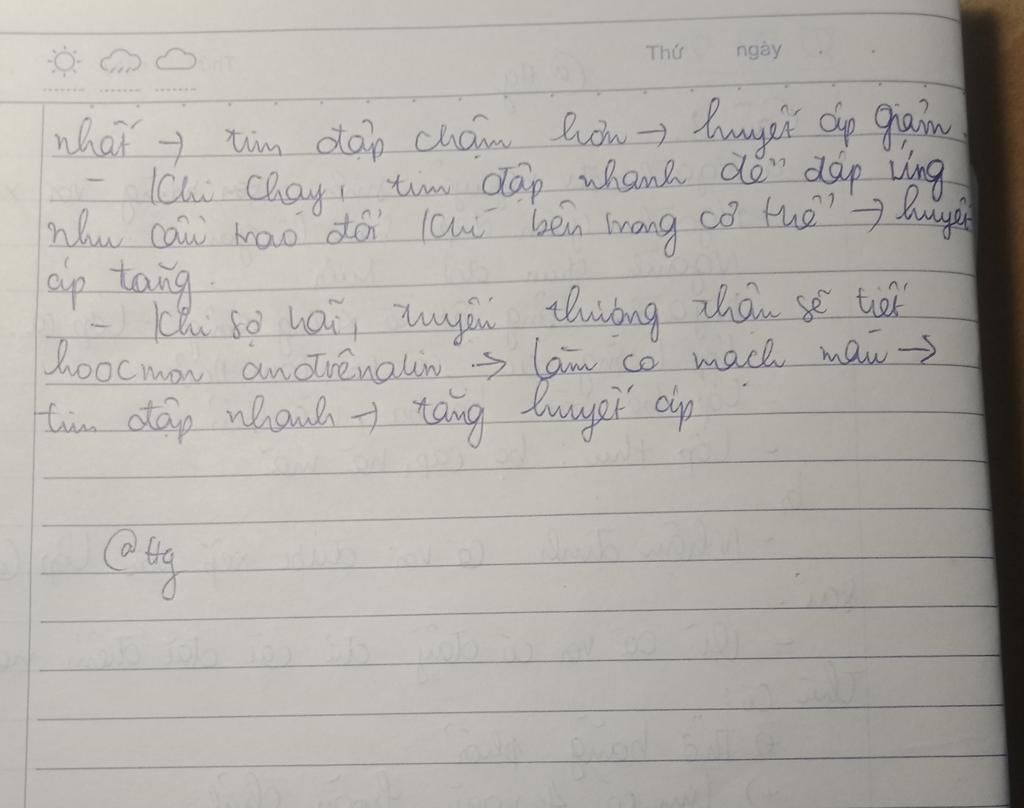 Thứ ngày . .
nhất → tim đập chậm hơn → huyết áp giảm.
- Khi chạy, tim đập nhanh để đáp ứng
nhu cầu trao đổi khí bên trong cơ thể → huyết
áp tăng.
- Khi sợ hãi, tuyến thượng thận sẽ tiết
hoocmon anđrênalin → làm co mạch máu →
tim đập nhanh → tăng huyết áp
@Hg